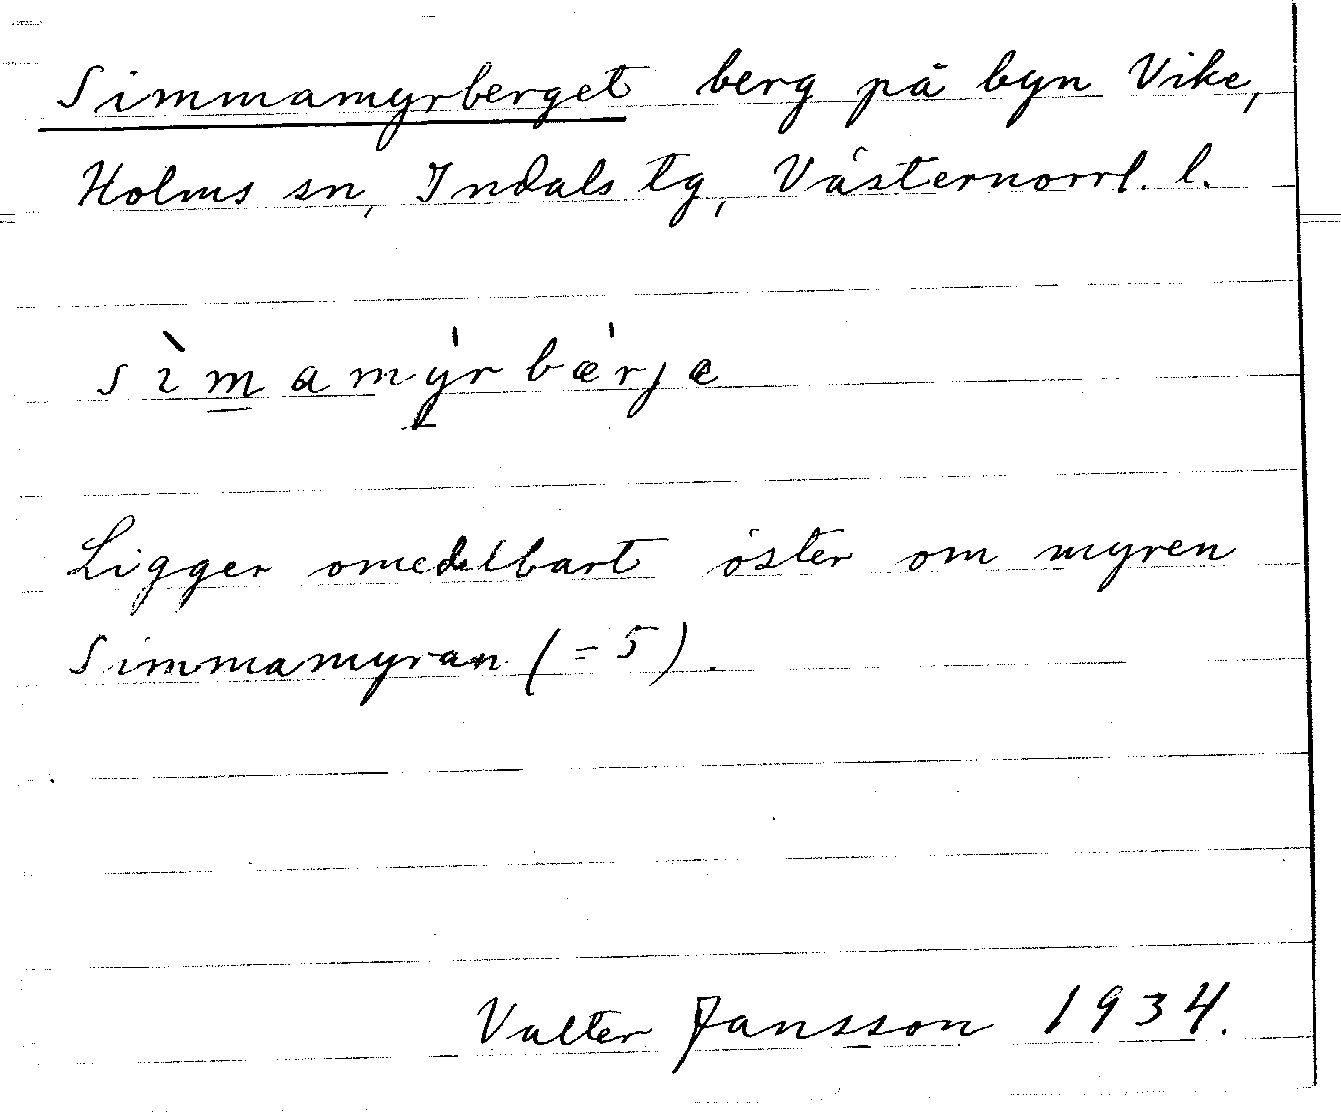 Simmamyrberget berg på byn Vike,
Holms sn, Indals tg, Västernorrl. l.
sìmamýrbærjæ
Ligger omedelbart öster om myren
Simmamyran (= 5).
Valter Jansson 1934.